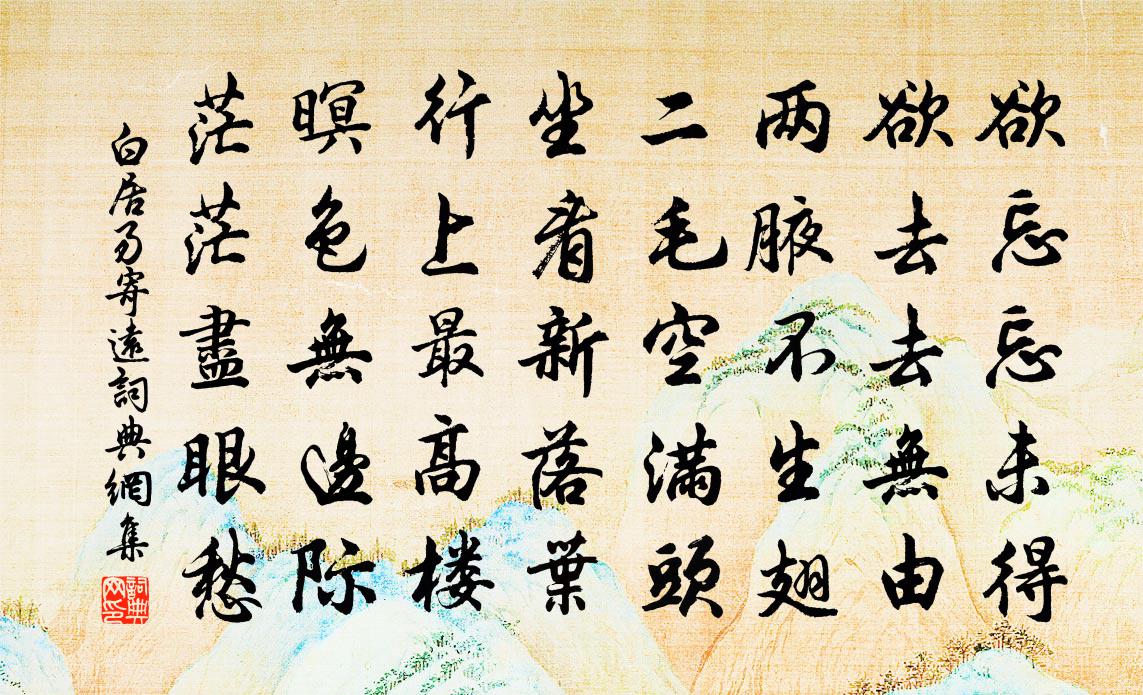 欲忘忘未得
欲去去無由
两腋不生翅
二毛空满頭
坐看新落葉
行上最高楼
暝色無邊际
茫茫盡眼愁
白居易寄遠詞典網集